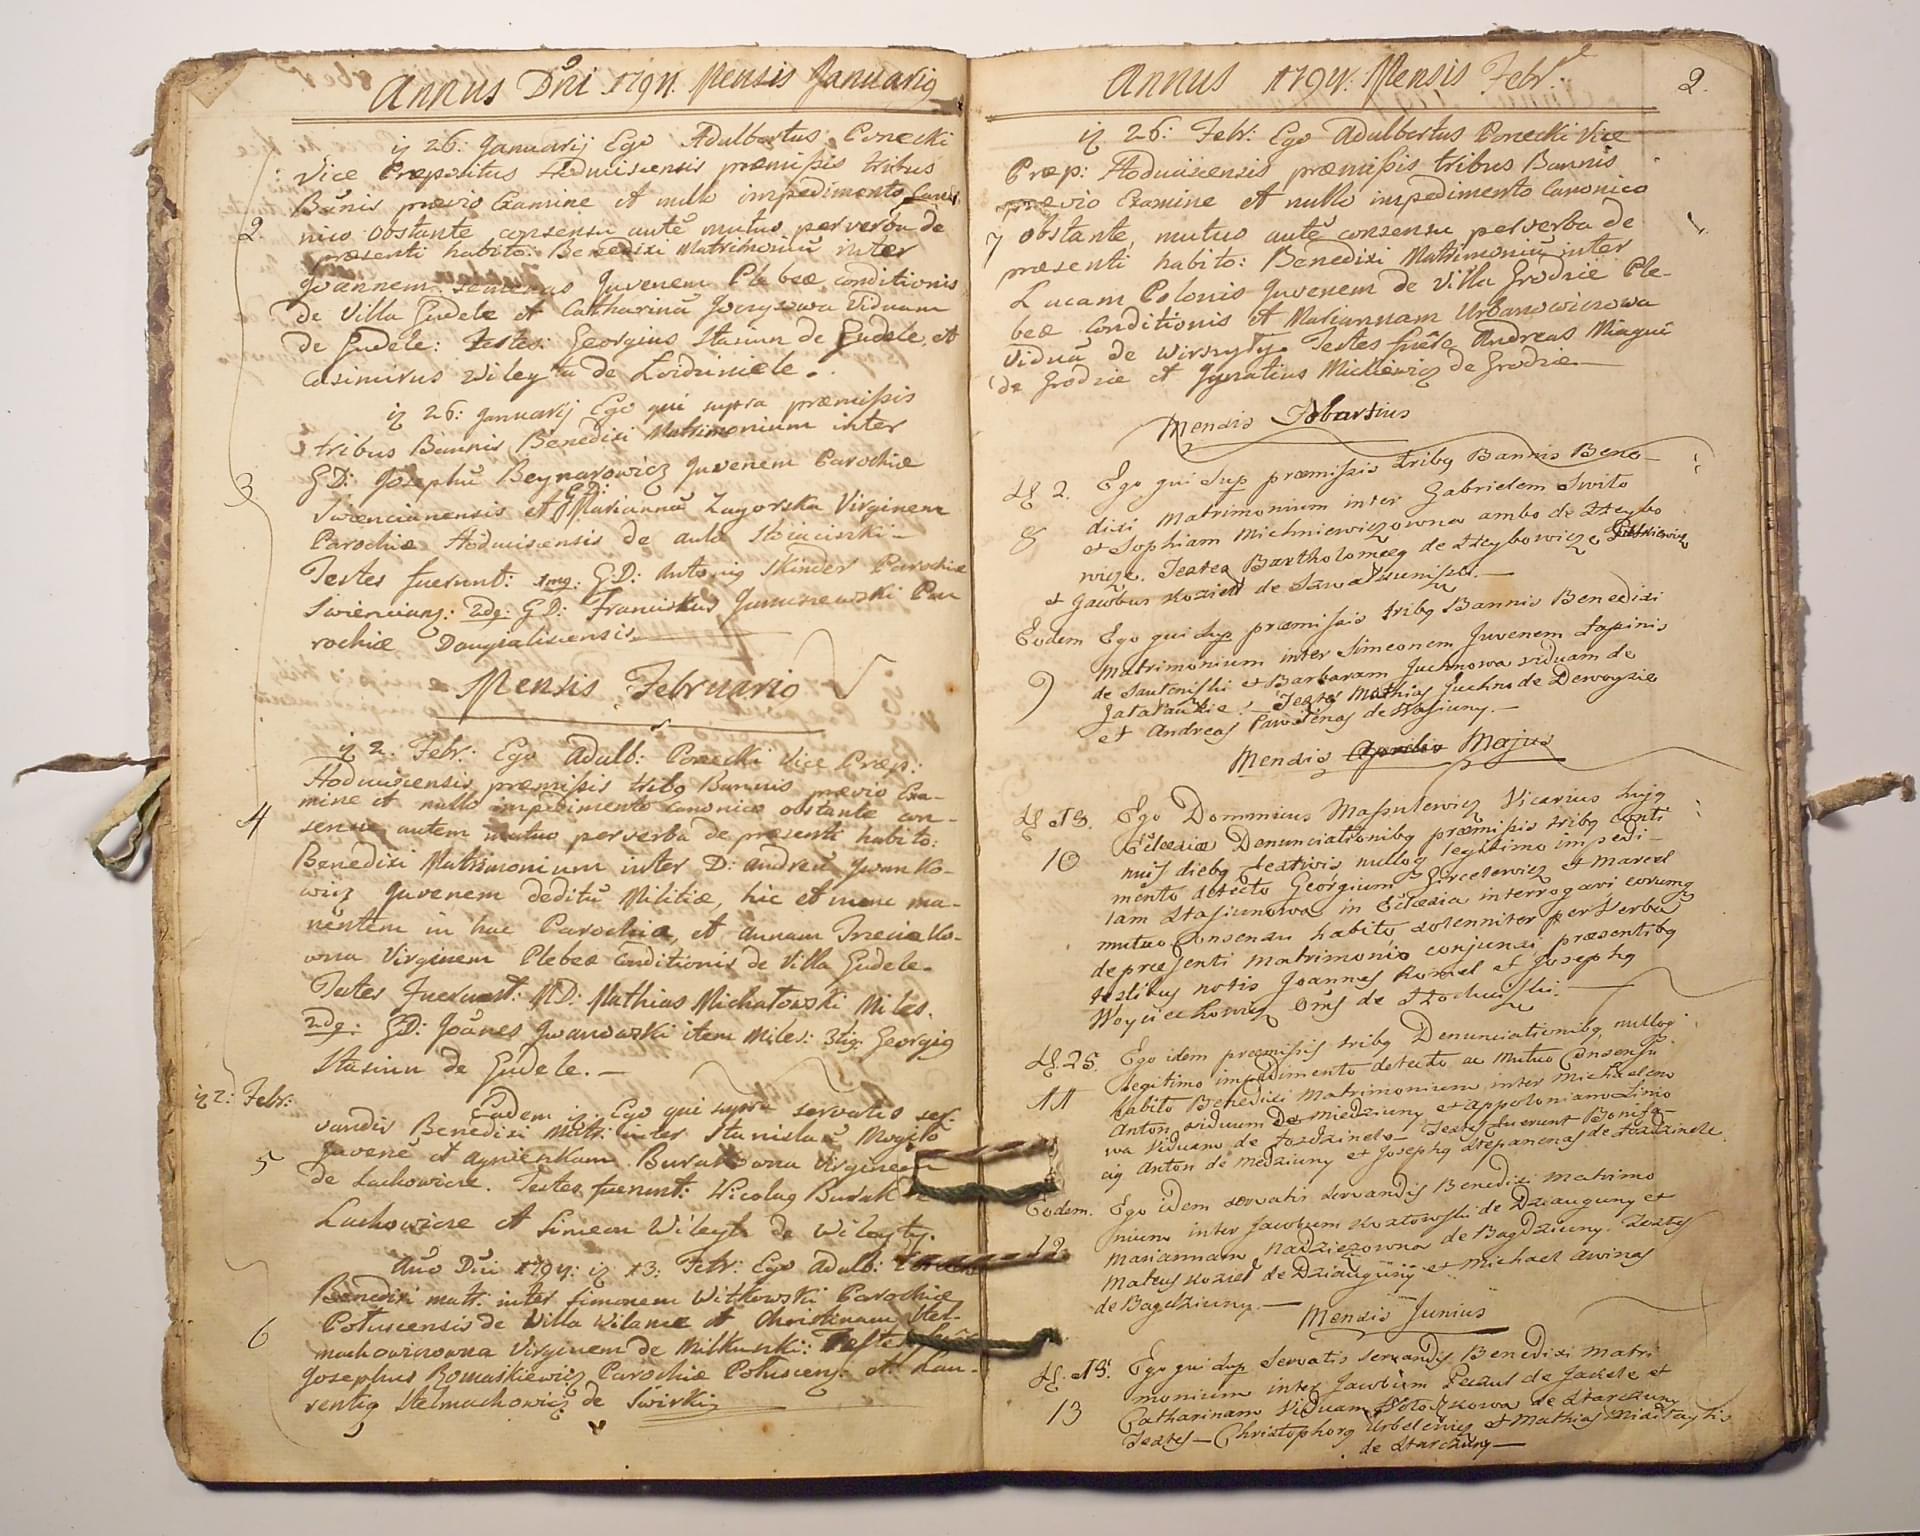 Annus Dni 1794. Mensis Januarig
iz 26: Januarij Ego Adalbertus Ponecki
Vice Præpositus Hoduisiensis præmißis tribus
Banis prævio Examine et nullo impedimento Cano
2. nico obstante consensu autē mutuo per verba de
præsenti habito: Benedixi Matrimoniū inter
Joannem Juvenem Plebeæ conditionis
de Villa Gudele et Catharinā Viduam
de Gudele: Testes: Georgius Stasiun de Gudele, et
Casimirus Wileyta de
iz 26: Januarij Ego qui supra præmißis
tribus Bannis Benedixi Matrimonium inter
3. GD: Josephū Beynarowicz Juvenem Parochiæ
Swiencianensis et GD: Mariannā Zagorska Virginem
Parochiæ Hoduisiensis de aula
Testes fuerunt: 1mg: GD: Antonig Skinder Parochiæ
Swienciang: 2dg: GD: Franciskus Pa
rochiæ Daugialisiensis
Mensis Februarig
iz 2. Febr: Ego Adalb: Ponecki Vice Præp:
Hoduisiensis præmißis tribg Bannis prævio Exa-
mine et nullo impedimento canonico obstante con-
4 sensu autem mutuo per verba de præsenti habito:
Benedixi Matrimonium inter D: Andreā Jwanko-
wicz Juvenem deditū Militiæ, hic et nunc ma-
nentem in hac Parochia, et Annam
owna Virginem Plebeæ Conditionis de Villa Gudele.
Testes Fuerunt: MD: Mathias Michałowski Miles.
2dg: GD: Joānes Jwanowski item Miles: 3tig: Georgig
Stasiun de Gudele.
iz 2: Febr: Eadem iz Ego qui supra servatis ser
vandis Benedixi Matr: inter Stanislaū Mogiło
Juvenē et Agnieszkam Burakowna Virginem
5 de Lachowicze. Testes fuerunt: Nicolag Burak
Lachowicze et Simeon Wileyta de Wileyty.
Anō Dni 1794: iz 13: Febr: Ego Adalb: Ponecki
Benedixi matr: inter Simonem Witkowski Parochiæ
Potuscensis de Villa Wilanie et Christinam Stel-
6 machowiczowna Virginem de Milkunski: Testes
Josephus Romaskiewicz Parochiæ Potusceng: et Lau-
rentig Stelmachowicz de Swirki
Annus 1794: Mensis Febr. 2.
iz 26: Febr: Ego Adalbertus Ponecki Vice
Præp: Hoduisiensis præmißis tribus Bannis
prævio Examine et nullo impedimento Canonico
7 obstante, mutuo autē consensu per verba de
præsenti habito: Benedixi Matrimoniū inter
Lucam Polonis Juvenem de Villa Grodzie Ple-
beæ Conditionis et Mariannam Urbanowiczowa
Viduā de Testes fuēre Andreas
de Grodzie et Jgnatius Mickiewicz de Grodzie
Mensis Martius
D. 2. Ego qui Sup præmißis tribg Bannis Bene-
8 dixi Matrimonium inter Gabrielem Swito
et Sophiam Michniewiczowna ambo de Steybo
wicze. Testes Bartholomeeg de Steybowicze
et Jacobus Kozieł de
Eodem Ego qui Sup præmißis tribg Bannis Benedixi
Matrimonium inter Simeonem Juvenem Łapinis
9 de et Barbaram Juchnowa viduam de
Testes Mathias Juchno de
et Andreas de Stasiuny.
Mensis Aprilis Majus
D. 13. Ego Dominicus Maßulewicz Vicarius hujg
10 Ecclesiæ Denunciationibg præmißis tribg conti
nuis diebg Festivis nullog legitimo impedi-
mento detecto Georgium et Marcel
lam Stasiunowa in Ecclesia interrogavi eorumq
mutuo Consensu habito solenniter per Verba
de præsenti Matrimonio conjunxi præsentibg
testibus notis Joannes et Josephg
Woyciechowicz
D. 25. Ego idem præmißis tribg Denunciationibg, nullog
11 legitimo impedimento detecto ac Mutuo Consensu
habito Benedixi Matrimonium inter Michaelem
Anton viduum De Miedziuny et Appoloniam
wa Viduam de Testes Fuerunt Bonifa-
cig Anton de Medziuny et Josephg Stepanenas de
Eodem. Ego idem servatis servandis Benedixi Matrimo
12. nium inter Jacobum Kozłowski de Dziauguny et
Mariannam de Bagdziuny. Testes
Mateus Kozieł de Dziauguny et Michael
de Bagdziuny.
Mensis Junius
D. 13. Ego qui Sup Servatis servandis Benedixi Matri
13 monium inter Jacobum de et
Catharinam Viduam de Starczuny
Testes — Christophorg et Mathias
de Starczuny